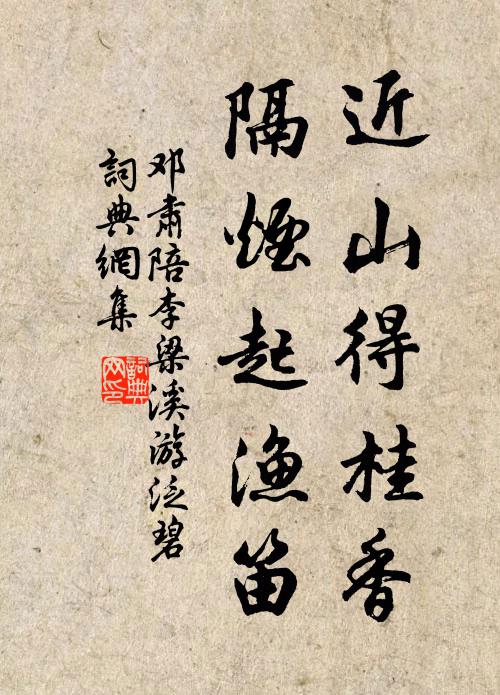 近山得桂香
隔煙起漁笛
邓肃陪李梁溪游泛碧
詞典網集
詞典
网印